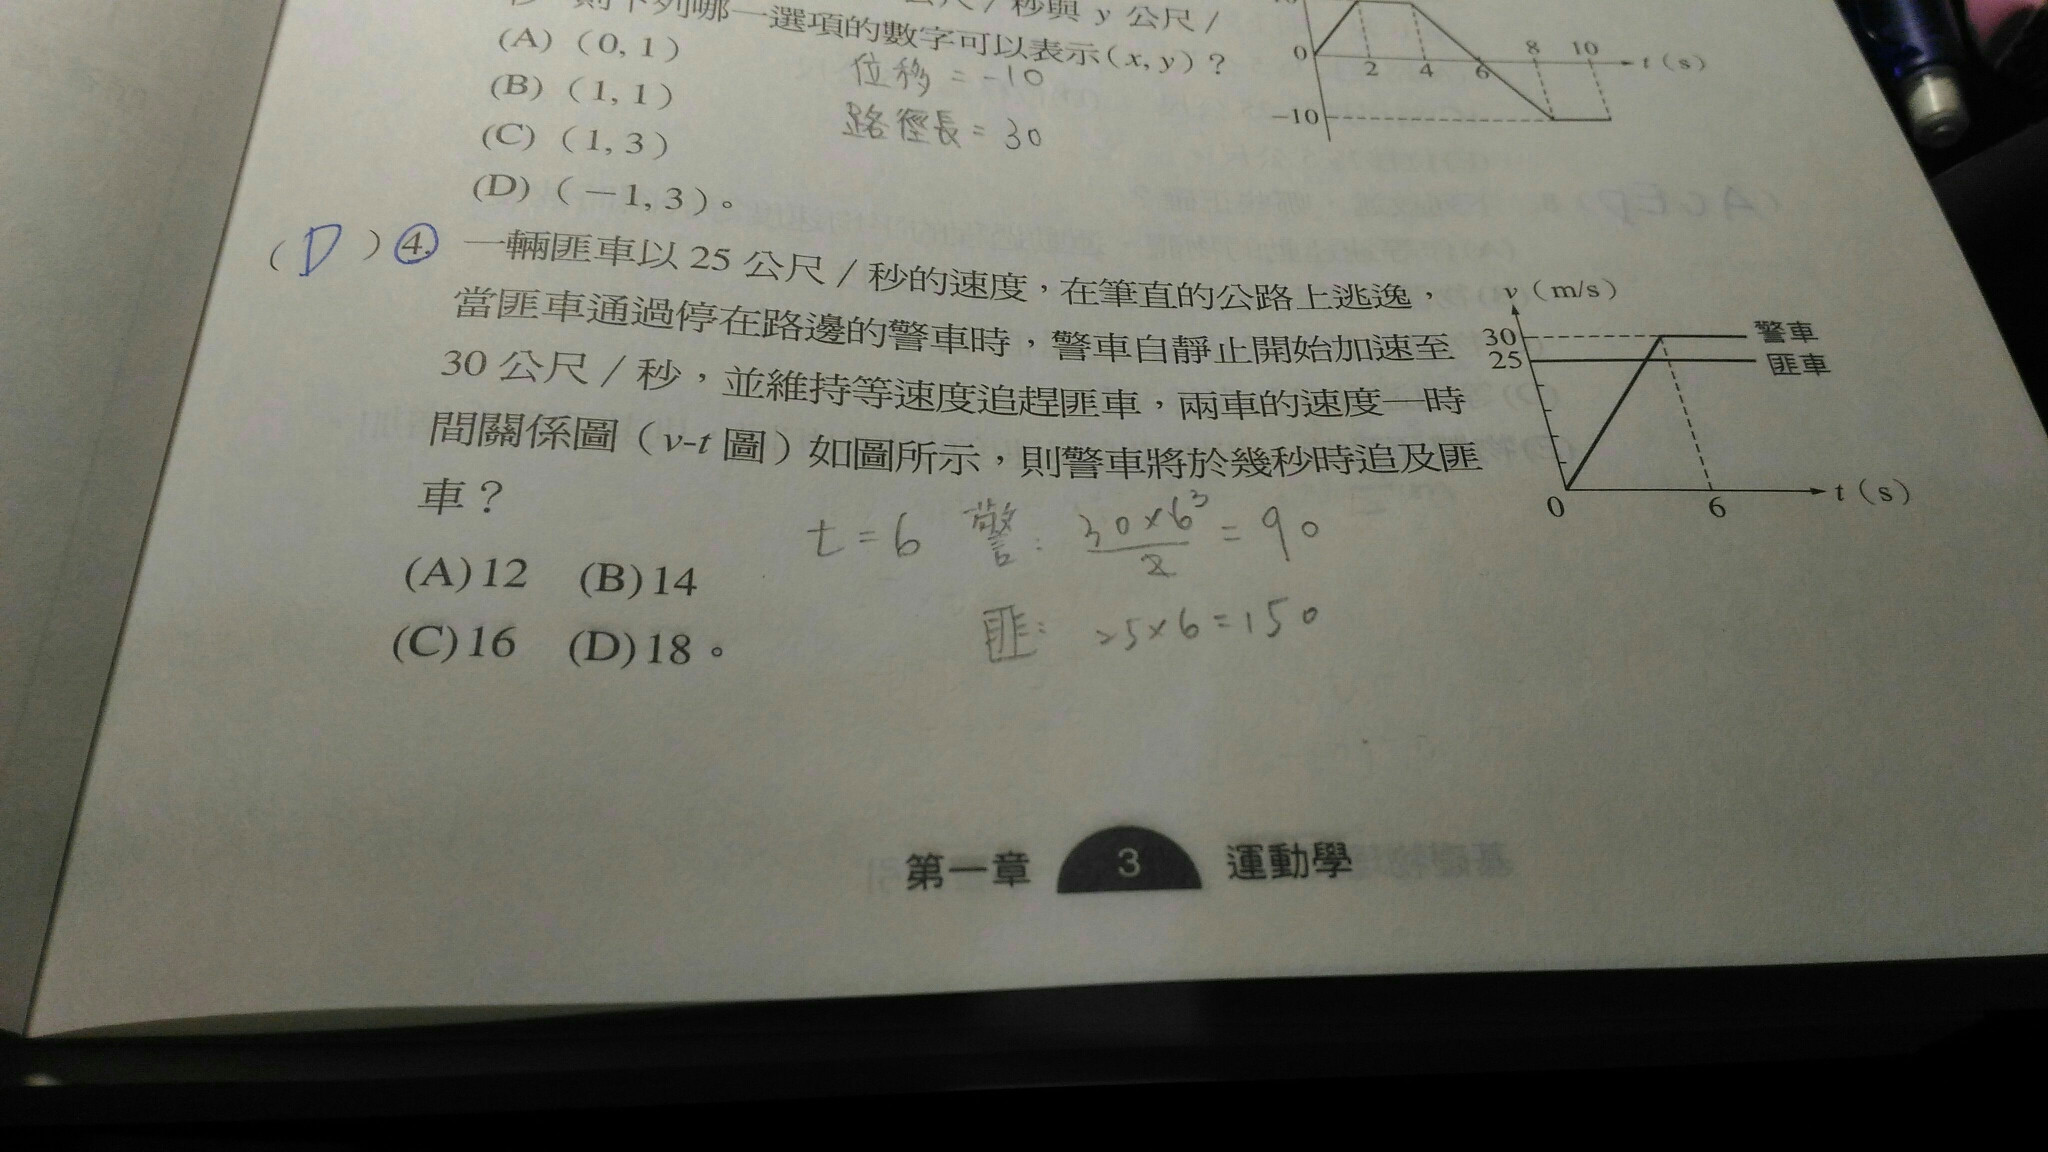 公尺／秒與 y 公尺／
則下列哪一選項的數字可以表示(x, y)？
(A)（0, 1）
(B)（1, 1）
(C)（1, 3）
(D)（－1, 3）。
位移 = -10
路徑長 = 30
0
2
4
6
8
10
t（s）
－10
( D ) 4. 一輛匪車以 25 公尺／秒的速度，在筆直的公路上逃逸，
當匪車通過停在路邊的警車時，警車自靜止開始加速至
30 公尺／秒，並維持等速度追趕匪車，兩車的速度—時
間關係圖（v-t 圖）如圖所示，則警車將於幾秒時追及匪
車？
(A)12 (B)14
(C)16 (D)18。
v（m/s）
30
25
警車
匪車
0
6
t（s）
t = 6 警: 30×6³/2 = 90
匪: 25×6=150
第一章 3 運動學